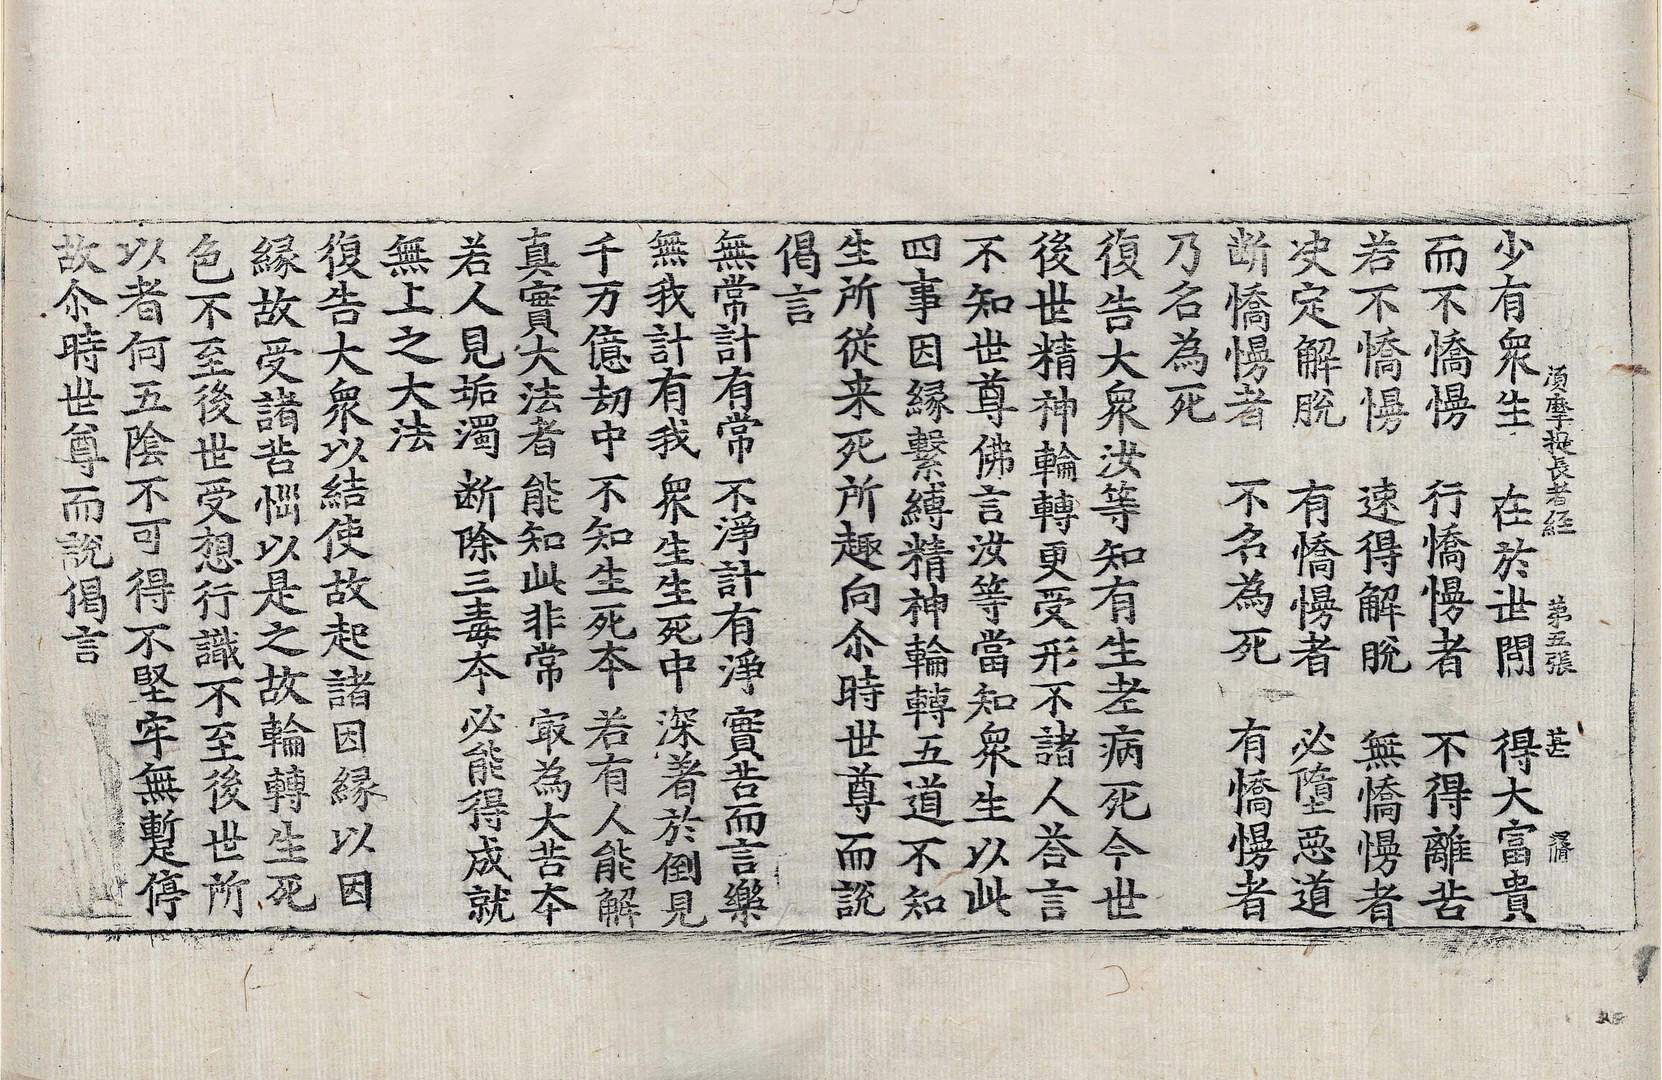 須摩提長者經 第五張 甚
少有衆生 在於世間 得大富貴
而不憍慢 行憍慢者 不得離苦
若不憍慢 速得解脫 無憍慢者
決定解脫 有憍慢者 必墮惡道
断憍慢者 不名為死 有憍慢者
乃名為死
復告大衆汝等知有生老病死今世
後世精神輪轉更受形不諸人荅言
不知世尊佛言汝等當知衆生以此
四事因縁繫縛精神輪轉五道不知
生所從来死所趣向尒時世尊而說
偈言
無常計有常 不淨計有淨 實苦而言樂
無我計有我 衆生生死中 深著於倒見
千万億劫中 不知生死夲 若有人能解
真實大法者 能知此非常 㝡為大苦夲
若人見垢濁 断除三毒夲 必能得成就
無上之大法
復告大衆以結使故起諸因縁以因
縁故受諸苦惱以是之故輪轉生死
色不至後世受想行識不至後世所
以者何五陰不可得不堅牢無暫停
故尒時世尊而說偈言